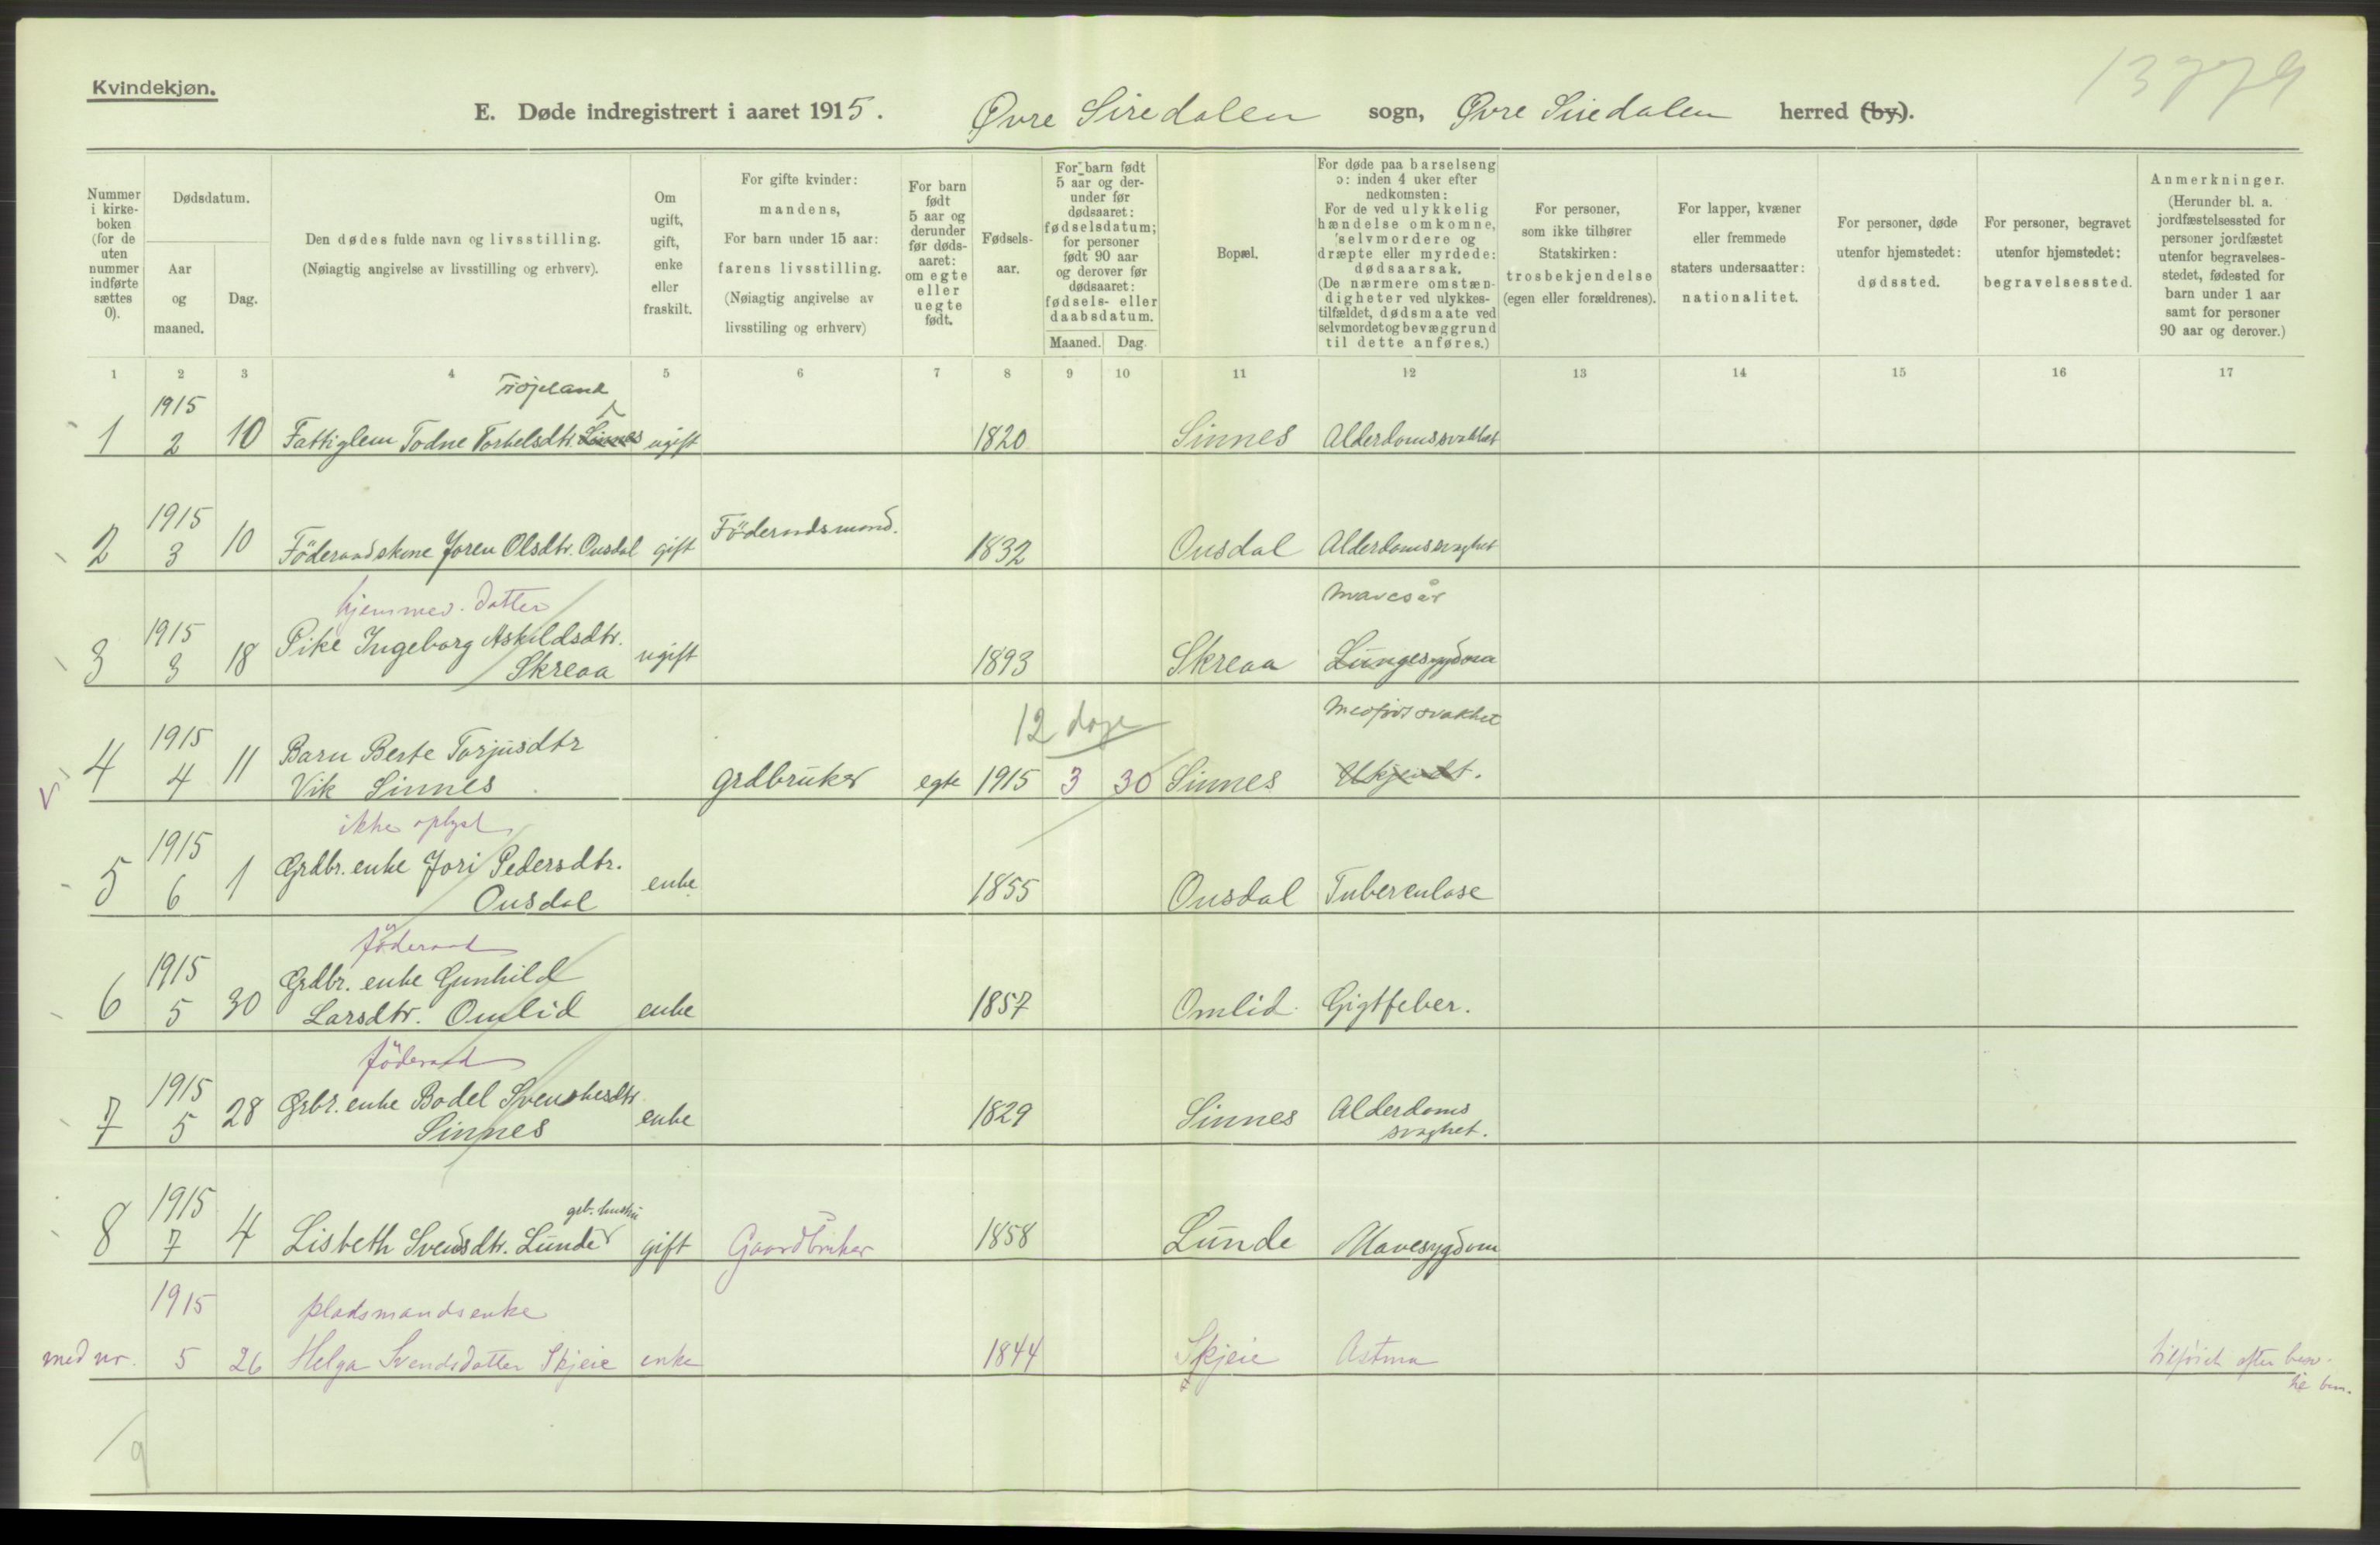 Kvindekjøn.
13779
E. Døde indregistrert i aaret 1915. Øvre Siredalen sogn, Øvre Siredalen herred (by).
Nummer i kirke-boken (for de uten nummer indførte sættes 0).
Dødsdatum.
Aar og maaned.
Dag.
Den dødes fulde navn og livsstilling.
(Nøiagtig angivelse av livsstilling og erhverv).
Om ugift, gift, enke eller fraskilt.
For gifte kvinder: mandens,
For barn under 15 aar: farens livsstilling.
(Nøiagtig angivelse av livsstiling og erhverv)
For barn født 5 aar og derunder før døds-aaret: om egte eller uegte født.
Fødsels-aar.
For barn født 5 aar og der-under før dødsaaret: fødselsdatum; for personer født 90 aar og derover før dødsaaret: fødsels- eller daabsdatum.
Maaned. Dag.
Bopæl.
For døde paa barselseng ɔ: inden 4 uker efter nedkomsten:
For de ved ulykkelig hændelse omkomne, selvmordere og dræpte eller myrdede: dødsaarsak.
(De nærmere omstæn-digheter ved ulykkes-tilfældet, dødsmaate ved selvmordet og bevæggrund til dette anføres.)
For personer, som ikke tilhører Statskirken: trosbekjendelse (egen eller forældrenes).
For lapper, kvæner eller fremmede staters undersaatter: nationalitet.
For personer, døde utenfor hjemstedet: dødssted.
For personer, begravet utenfor hjemstedet: begravelsessted.
Anmerkninger.
(Herunder bl. a. jordfæstelsessted for personer jordfæstet utenfor begravelses-stedet, fødested for barn under 1 aar samt for personer 90 aar og derover.)
1 2 3 4 5 6 7 8 9 10 11 12 13 14 15 16 17
1 1915 2 10 Fattiglem Todne Torkelsdtr. Sinnes ugift 1820 Sinnes Alderdomssvakhet
2 1915 3 10 Föderaadskone Joren Olsdtr. Ousdal gift Föderaadsmand. 1832 Ousdal Alderdomssvaghet
hjemmev. datter
mavesår
3 1915 3 18 Pike Ingeborg Askildsdtr. Skreaa ugift 1893 Skreaa Lungesygdom
12 dage
Medfødt svakhet
4 1915 4 11 Barn Berte Torjusdtr Vik Sinnes grdbruker egte 1915 3 30 Sinnes Ukjendt.
ikke oplyst
5 1915 6 1 Grdbr. enke Jori Pedersdtr. Ousdal enke 1855 Ousdal Tuberculose
föderaad
6 1915 5 30 Grdbr. enke Gunhild Larsdtr. Omlid enke 1857 Omlid Gigtfeber.
föderaad
7 1915 5 28 Grbr. enke Bodel Svenkesdtr. Sinnes enke 1829 Sinnes Alderdoms svaghet.
8 1915 7 4 Lisbeth Svendsdtr. Lunde gift Gaardbruker 1858 Lunde Mavesygdom
1915 pladsmandsenke
med nr. 5 26 Helga Svendsdatter Skjeie enke 1844 Skjeie Astma tilføiet efter
9